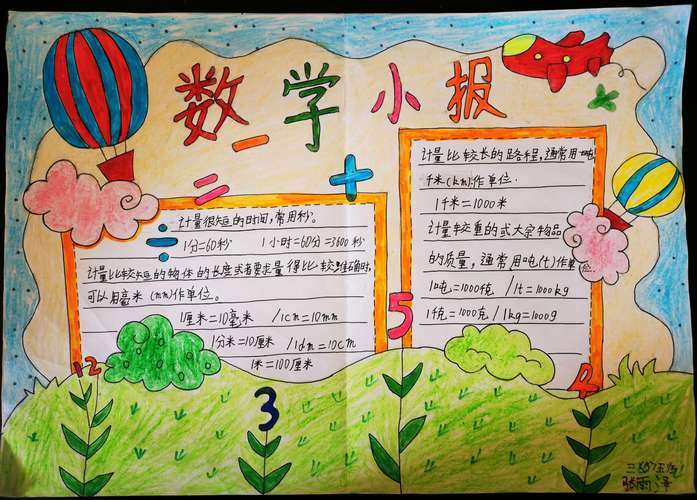 数学小报
计量很短的时间,常用秒。
1分=60秒 1小时=60分=3600秒
计量比较短的物体的长度或者要求量得比较准确时,
可以用毫米(mm)作单位。
1厘米=10毫米 /1cm=10mm
1分米=10厘米 /1dm=10cm
1米=100厘米
计量比较长的路程,通常用
千米(km)作单位.
1千米=1000米
计量较重的或大宗物品
的质量,通常用吨(t)作单位
1吨=1000千克 /1t=1000kg
1千克=1000克 /1kg=1000g
5
12
3
张雨泽